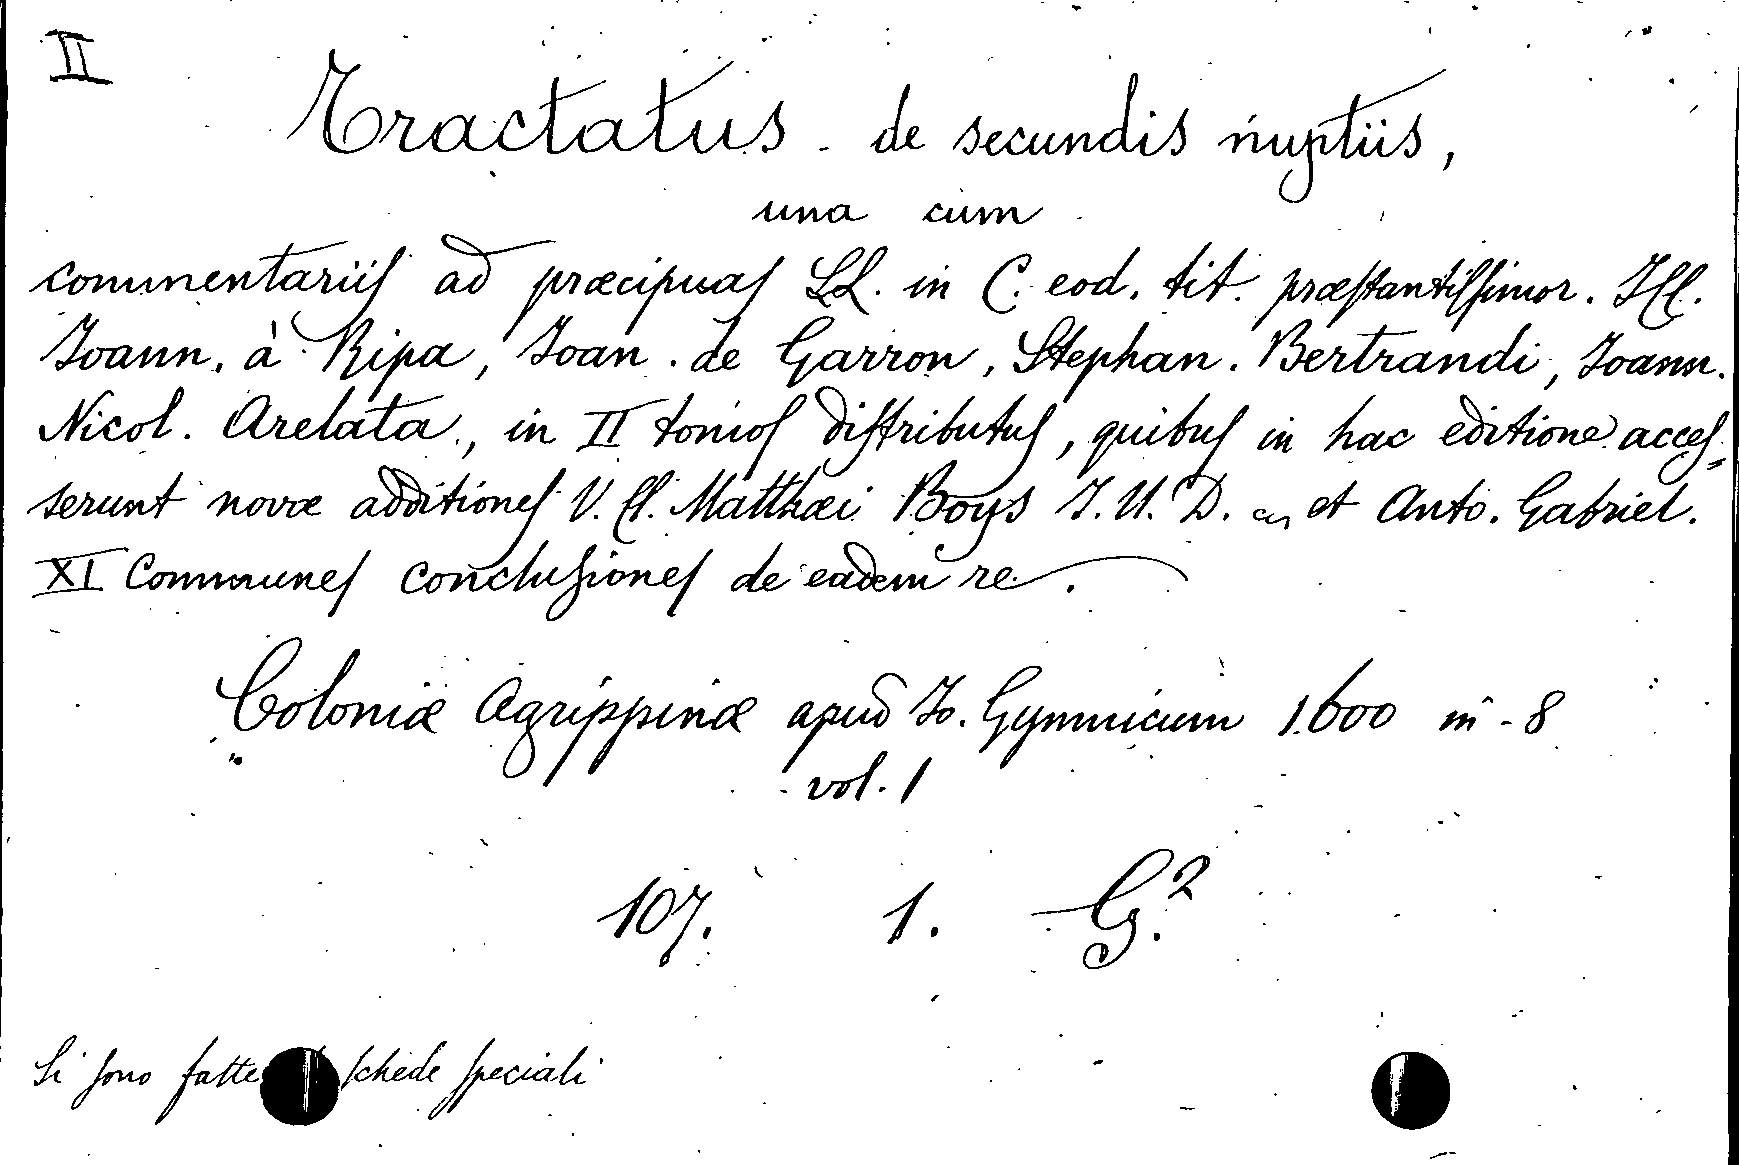 II
Tractatus de secundis nuptiis,
una cum
commentariis ad præcipuas LL. in C. eod. tit. præstantissimor. ICC.
Ioann. à Ripa, Ioan. de Garron, Stephan. Bertrandi, Ioann.
Nicol. Arelata., in II tomos distributus, quibus in hac editione acces=
serunt novæ additiones V. Cl. Matthæi Boys I. U. D. et Anto. Gabriel.
XI Communes conclusiones de eadem re.
Coloniæ Agrippinæ apud Io. Gymnicum 1600 in-8
vol. 1
107. 1. G.2
Si sono fatte schede speciali